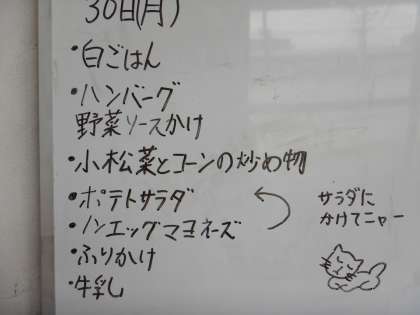 30日(月)
・白ごはん
・ハンバーグ
野菜ソースかけ
・小松菜とコーンの炒め物
・ポテトサラダ
・ノンエッグマヨネーズ
サラダに
かけてニャー
・ふりかけ
・牛乳